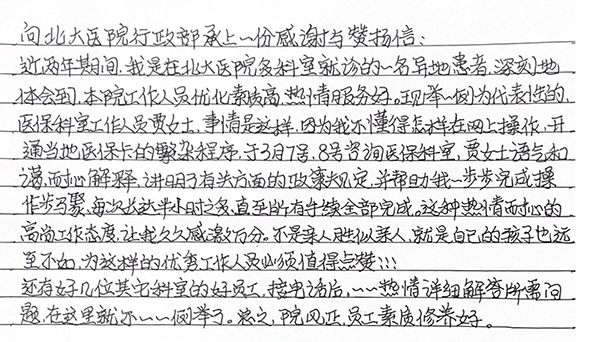 向北大医院行政部承上一份感谢与赞扬信:
近两年期间,我是在北大医院各科室就诊的一名异地患者,深刻地
体会到,本院工作人员优化素质高,热情服务好。现举一例为代表性的,
医保科室工作人员贾女士,事情是这样,因为我不懂得怎样在网上操作,开
通当地医保卡的繁杂程序,于3月7号、8号咨询医保科室,贾女士语气和
谒,而心解释,讲明了有关方面的政策规定,并帮助我一步步完成操
作步骤,每次长达半小时之多,直至所有手续全部完成。这种热情而心的
高尚工作态度,让我久久感激万分。不是亲人胜似亲人,就是自己的孩子也远
至不如,为这样的优秀工作人员必须值得点赞!!!
还有好几位其它科室的好员工,接电话后,一一热情详细解答所需问
题,在这里就不一一例举了。总之,院风正,员工素质修养好。